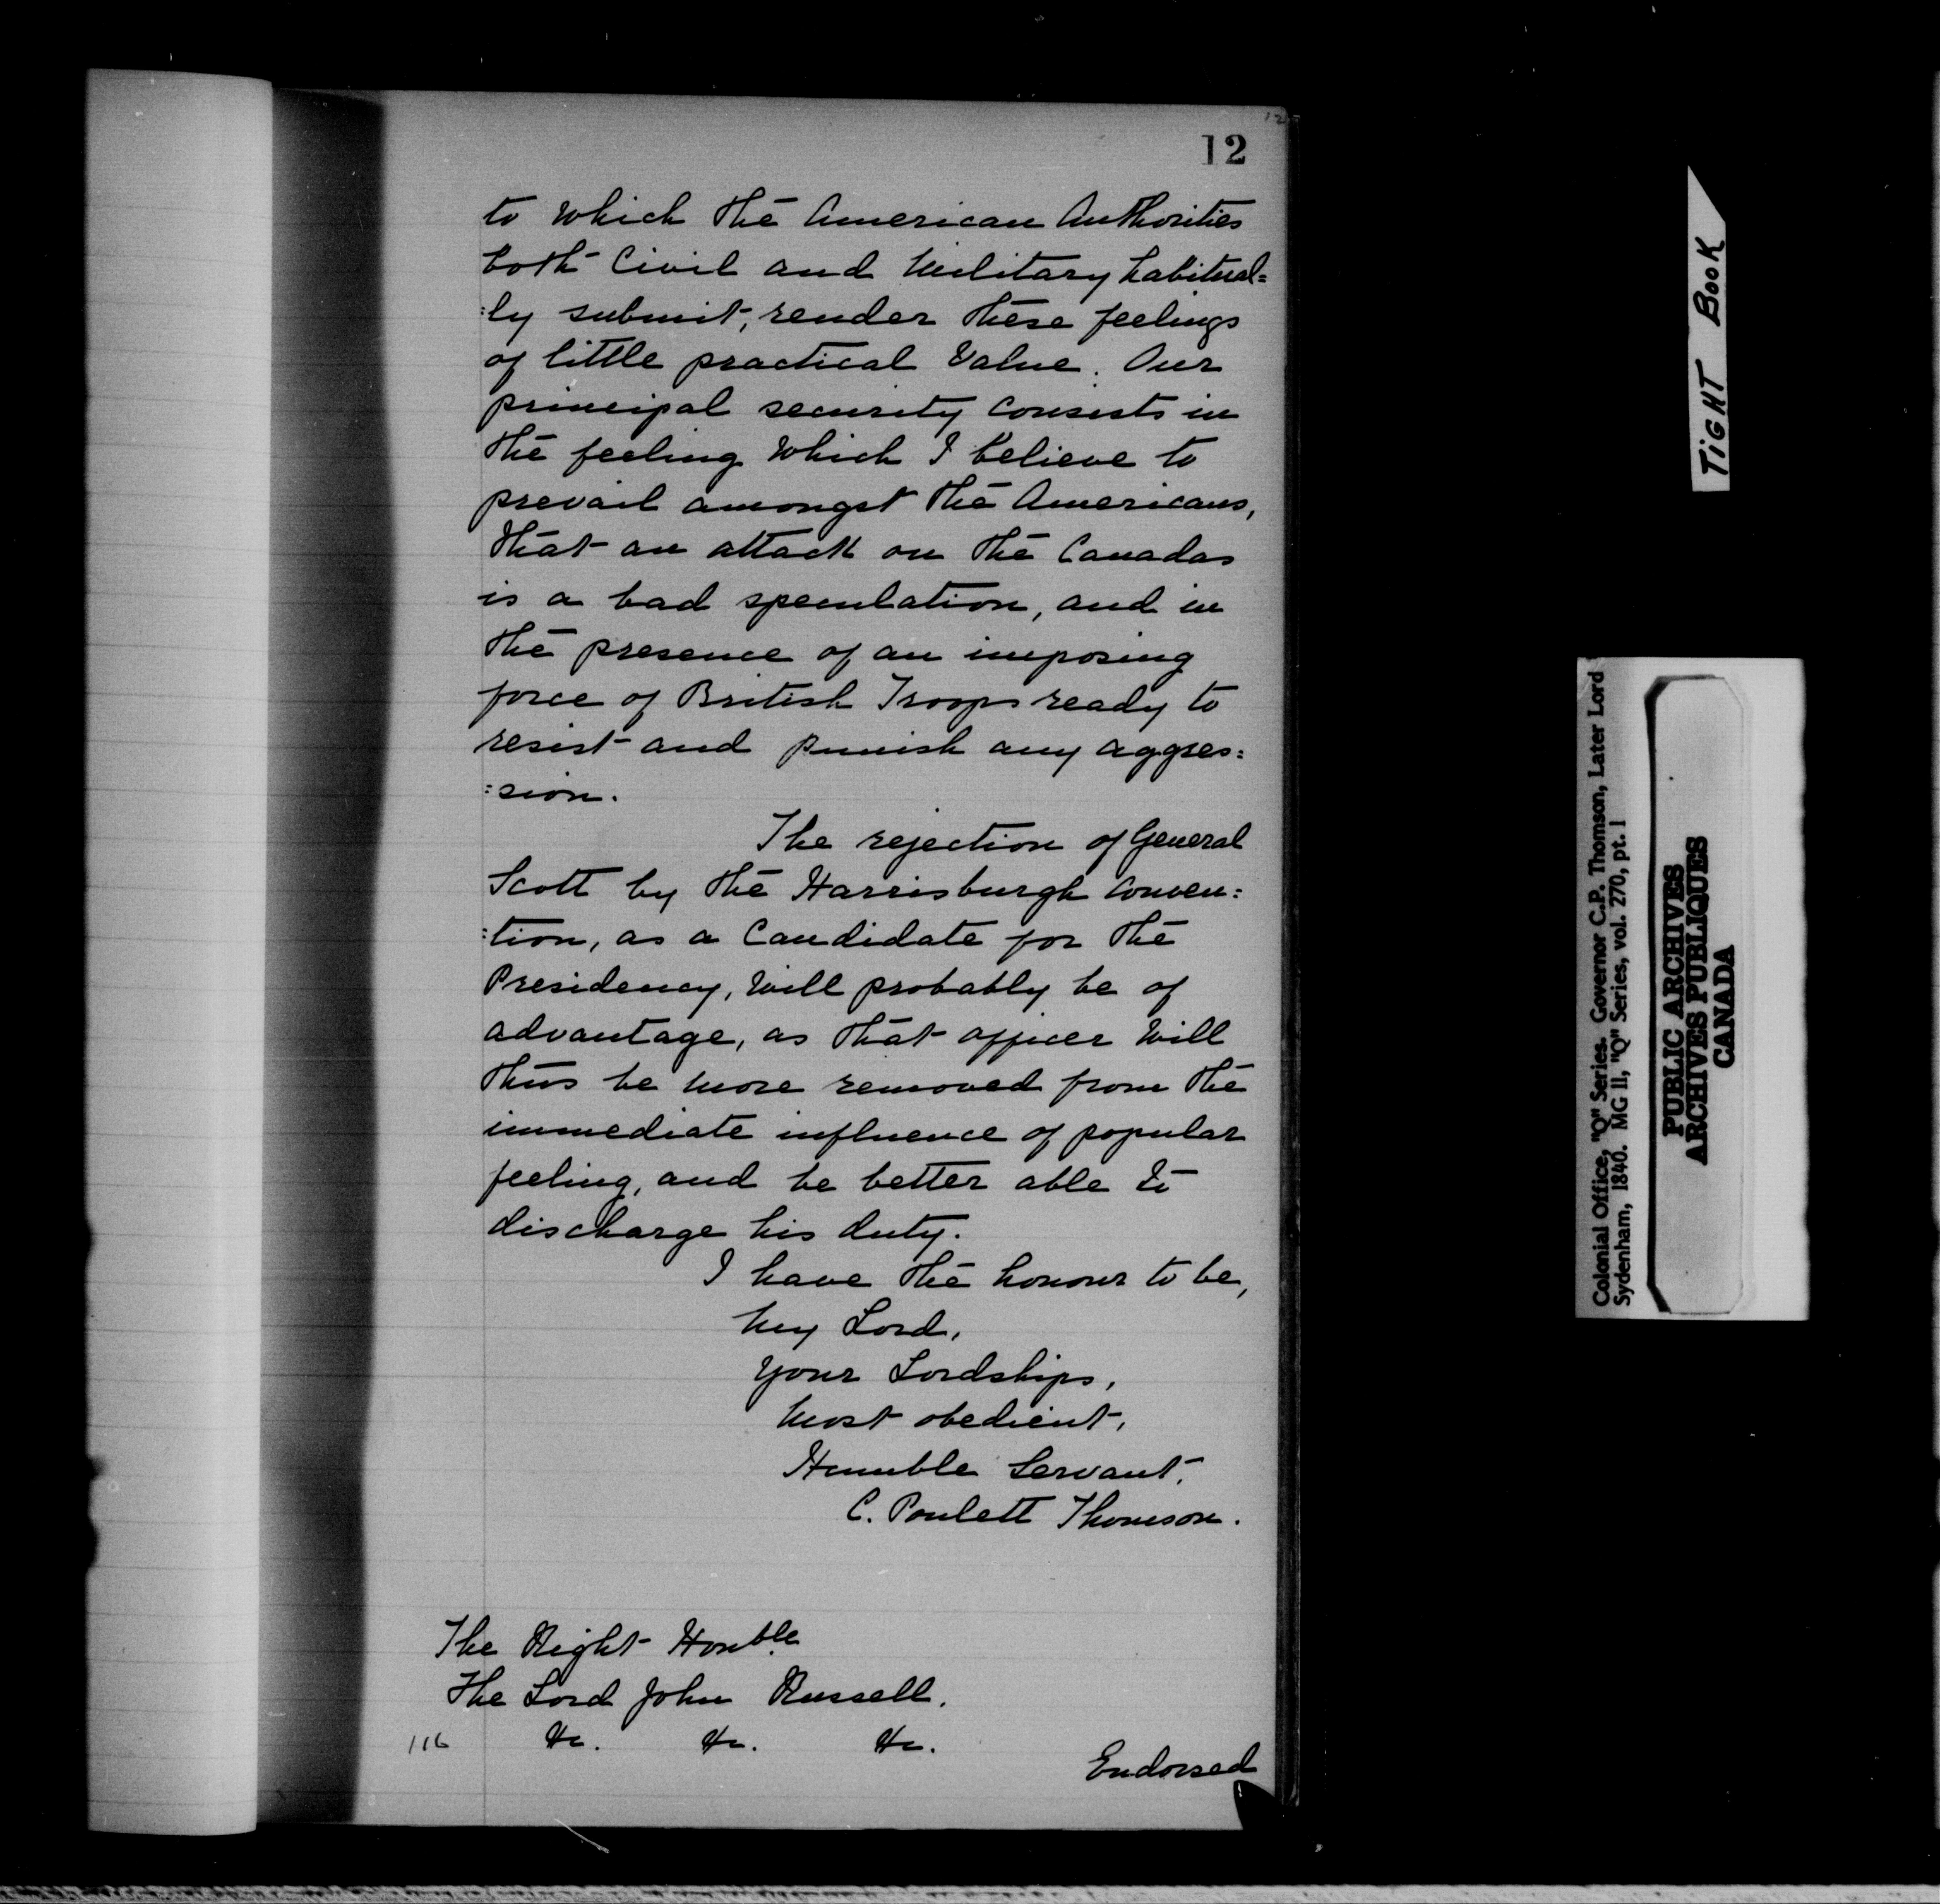 12
12
to which the American Authorities
both Civil and Military habitual=
:ly submit, render these feelings
of little practical Value. Our
principal security consists in
the feeling which I believe to
prevail amongst the Americans,
that an attack on the Canadas
is a bad speculation, and in
the presence of an imposing
force of British Troops ready to
resist and punish any aggres:
:sion.
The rejection of General
Scott by the Harrisburgh Conven:
:tion, as a Candidate for the
Presidency, will probably be of
advantage, as that officer will
thus be more removed from the
immediate influence of popular
feeling, and be better able to
discharge his duty.
I have the honour to be,
My Lord,
Your Lordships,
Most obedient,
Humble Servant,
C. Poulett Thomson.
The Right Honble.
The Lord John Russell.
116 &c. &c. &c.
Endorsed
TIGHT BOOK
Colonial Office, "Q" Series. Governor C.P. Thomson, Later Lord
Sydenham, 1840. MG 11, "Q" Series, vol. 270, pt. 1
PUBLIC ARCHIVES
ARCHIVES PUBLIQUES
CANADA